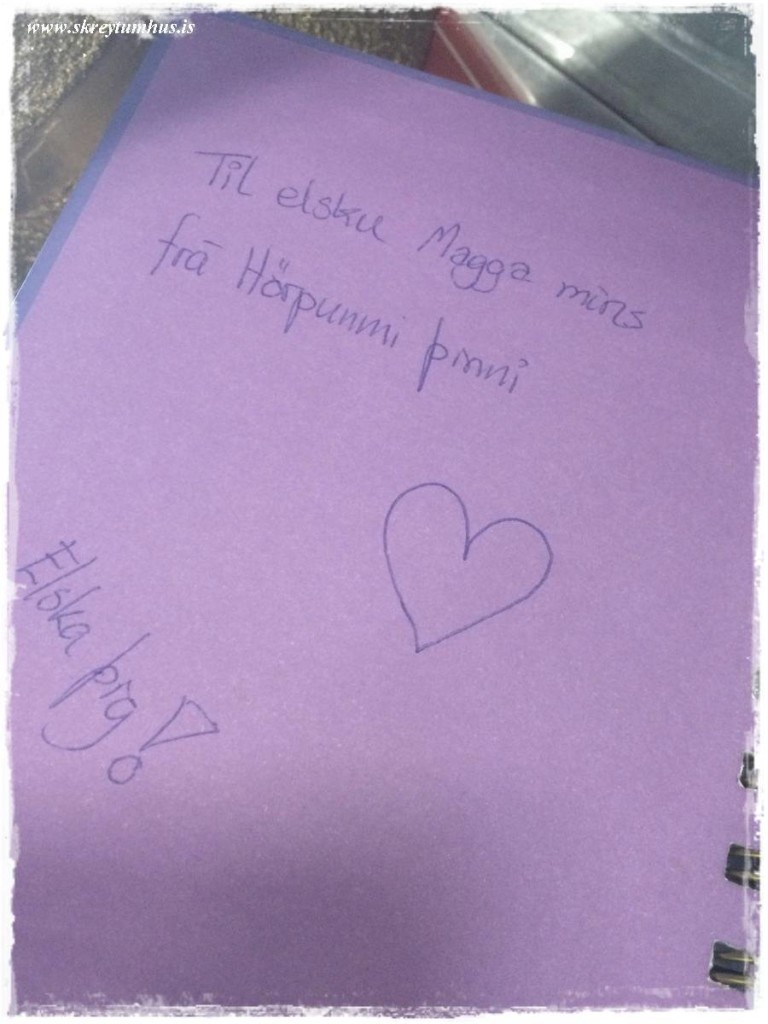 www.skreytumhus.is
Til elsku Magga míns
frá Hörpunni þinni
Elska þig!